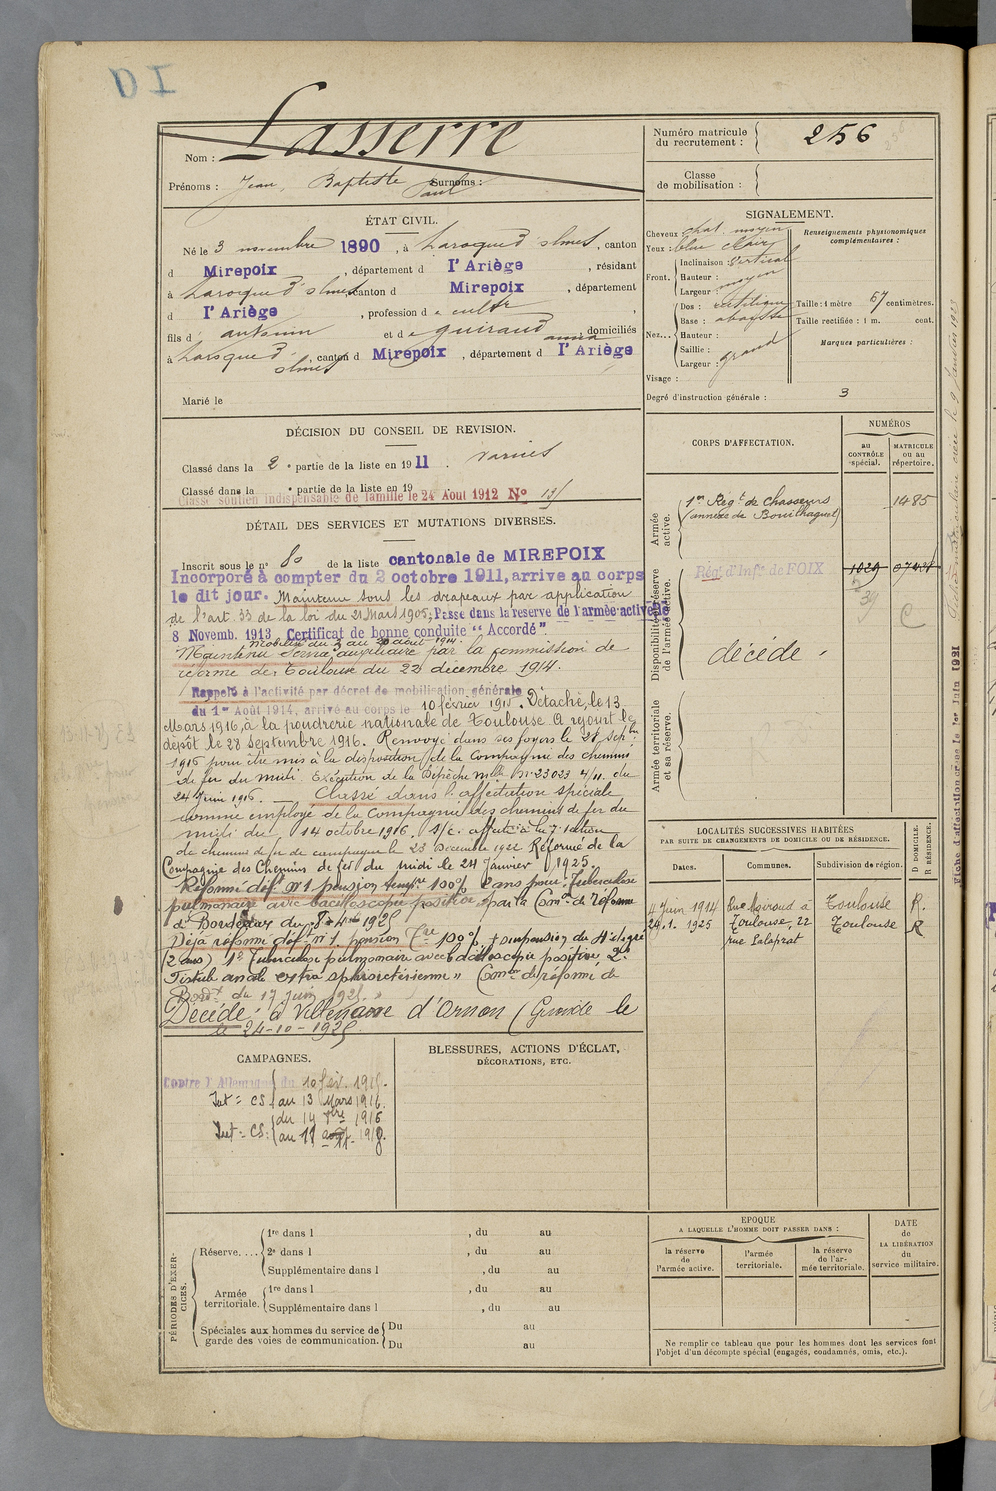 D I
Nom : Lasserre
Prénoms : Jean, Baptiste Paul Surnoms :
Numéro matricule
du recrutement : 256
Classe
de mobilisation :
ÉTAT CIVIL.
Né le 3 novembre 1890, à Laroque d'olmes, canton
d Mirepoix, département d l'Ariège, résidant
à Laroque d'olmes, canton d Mirepoix, département
d l'Ariège, profession de cultr,
fils d antonin et de guiraud anna, domiciliés
à Laroque d'olmes, canton d Mirepoix, département d l'Ariège
Marié le
SIGNALEMENT.
Cheveux chat. moyen
Yeux : bleu clair
Renseignements physionomiques
complémentaires :
Front. Inclinaison : Vertical
Hauteur : moyen
Largeur :
Nez... Dos : rectiligne
Base :
Hauteur :
Saillie :
Largeur : grand
Taille : 1 mètre 67 centimètres.
Taille rectifiée : 1 m. cent.
Marques particulières :
Visage :
Degré d'instruction générale : 3
DÉCISION DU CONSEIL DE REVISION.
Classé dans la 2e partie de la liste en 1911. varices
Classé dans la e partie de la liste en 19
Classé soutien indispensable de famille le 24 Aout 1912 No 131
DÉTAIL DES SERVICES ET MUTATIONS DIVERSES.
Inscrit sous le no 80 de la liste cantonale de MIREPOIX
Incorporé à compter du 2 octobre 1911, arrive au corps
le dit jour. Maintenu sous les drapeaux par application
de l'art 33 de la loi du 21 Mars 1905; Passe dans la reserve de l'armée active le
8 Novemb. 1913 Certificat de bonne conduite "Accordé".
Mobilisé du 3 au 20 août 1914.
Maintenu service auxiliaire par la commission de
réforme de Toulouse du 22 décembre 1914.
Rappelé à l'activité par décret de mobilisation générale
du 1er Août 1914, arrivé au corps le 10 février 1915. Détaché, le 13
Mars 1916, à la poudrerie nationale de Toulouse. A rejoint le
dépôt le 28 Septembre 1916. Renvoyé dans ses foyers le 28 Sepbre
1916 pour être mis à la disposition de la Compagnie des chemins
de fer du midi. Exécution de la Dépêche mlle No 23023 4/11. du
24 Juin 1916. Classé dans l'affectation spéciale
comme employé de la Compagnie des chemins de fer du
midi du 14 octobre 1916. affecté à la 7e Section
de chemins de fer de campagne le 23 Décembre 1922 Réformé de la
Compagnie des Chemins de fer du midi le 24 Janvier 1925.
Réformé déf. No 1 pension tempre 100% 2 ans pour Tuberculose
pulmonaire avec bacilloscopie positive par la Comon de réforme
de Bordeaux du 8-4-1925
Déjà réformé déft No 1 pension 100%
(2 ans) 1o Tuberculose pulmonaire avec bacilloscopie positive, 2o
Fistule anale extra sphinctérienne " Comon de réforme de
Bordx du 17 juin 1925. "
Décédé à Villenave d'Ornon (Gironde le
le 24-10-1925.
CORPS D'AFFECTATION.
NUMÉROS
au
CONTRÔLE
spécial.
MATRICULE
ou au
répertoire.
Armée
active.
1er Régt de Chasseurs 1485
(annexe de Bouilhaguet)
Disponibilité et réserve
de l'armée active.
Régt d'Infie de FOIX 1029
39
C
décédé
Armée territoriale
et sa réserve.
LOCALITÉS SUCCESSIVES HABITÉES
PAR SUITE DE CHANGEMENTS DE DOMICILE OU DE RÉSIDENCE.
D DOMICILE.
R RÉSIDENCE.
Dates. Communes. Subdivision de région.
4 Juin 1914 Rue Moiroud à Toulouse R.
24.1.1925 Toulouse, 22 Toulouse R
rue Lalaprat
CAMPAGNES.
Contre l'Allemagne du 10 fév. 1915.
Int = CS au 13 Mars 1916.
du 14 8bre 1916
Int = CS. au 11 1918.
BLESSURES, ACTIONS D'ÉCLAT,
DÉCORATIONS, ETC.
PÉRIODES D'EXER-
CICES.
Réserve.... 1re dans l , du au
2e dans l , du au
Supplémentaire dans l , du au
Armée
territoriale. 1re dans l , du au
Supplémentaire dans l , du au
Spéciales aux hommes du service de
garde des voies de communication. Du au
Du au
EPOQUE
A LAQUELLE L'HOMME DOIT PASSER DANS :
la réserve
de
l'armée active.
l'armée
territoriale.
la réserve
de l'ar-
mée territoriale.
DATE
de
LA LIBÉRATION
du
service militaire.
Ne remplir ce tableau que pour les hommes dont les services font
l'objet d'un décompte spécial (engagés, condamnés, omis, etc.).
Fiche d'affectation créée le 1er Juin 1921